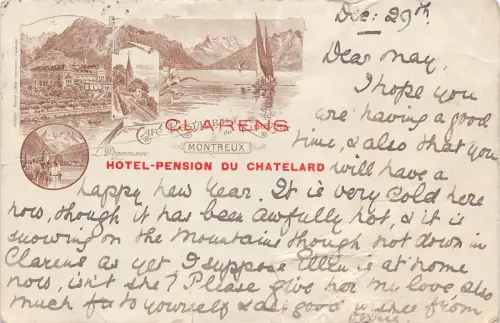 Dec: 29th.
Dear May,
I hope you
are having a good
time, & also that you
will have a
CLARENS
MONTREUX
L. Degenmann
HOTEL-PENSION DU CHATELARD
happy new Year. It is very cold here
now, though it has been awfully hot, & it is
snowing on the Mountains though not down in
Clarens as yet I suppose Ellen is at home
now, isn't she? Please give her my love also
much for to yourself & all good wishes from